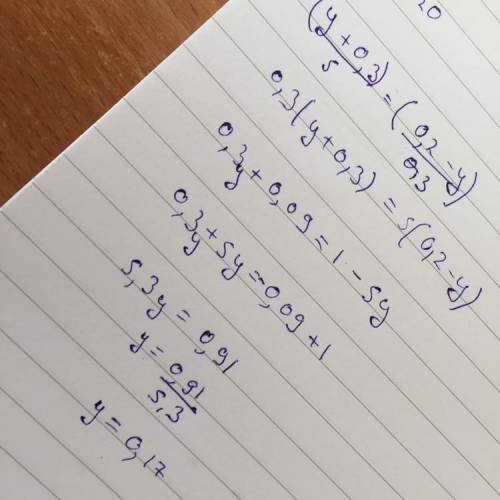 20
(y+0,3)/5 = (0,2-y)/0,3
0,3(y+0,3) = 5(0,2-y)
0,3y+0,09=1-5y
0,3y+5y=-0,09+1
5,3y=0,91
y=0,91/5,3
y=0,17